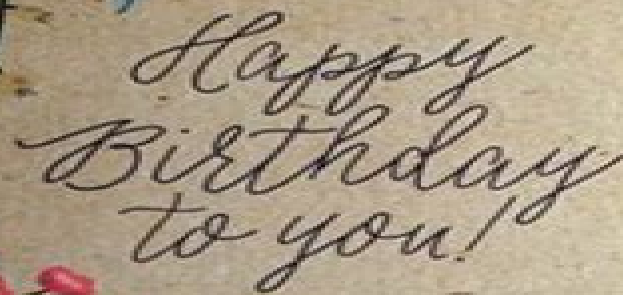 Happy
Birthday
to you!